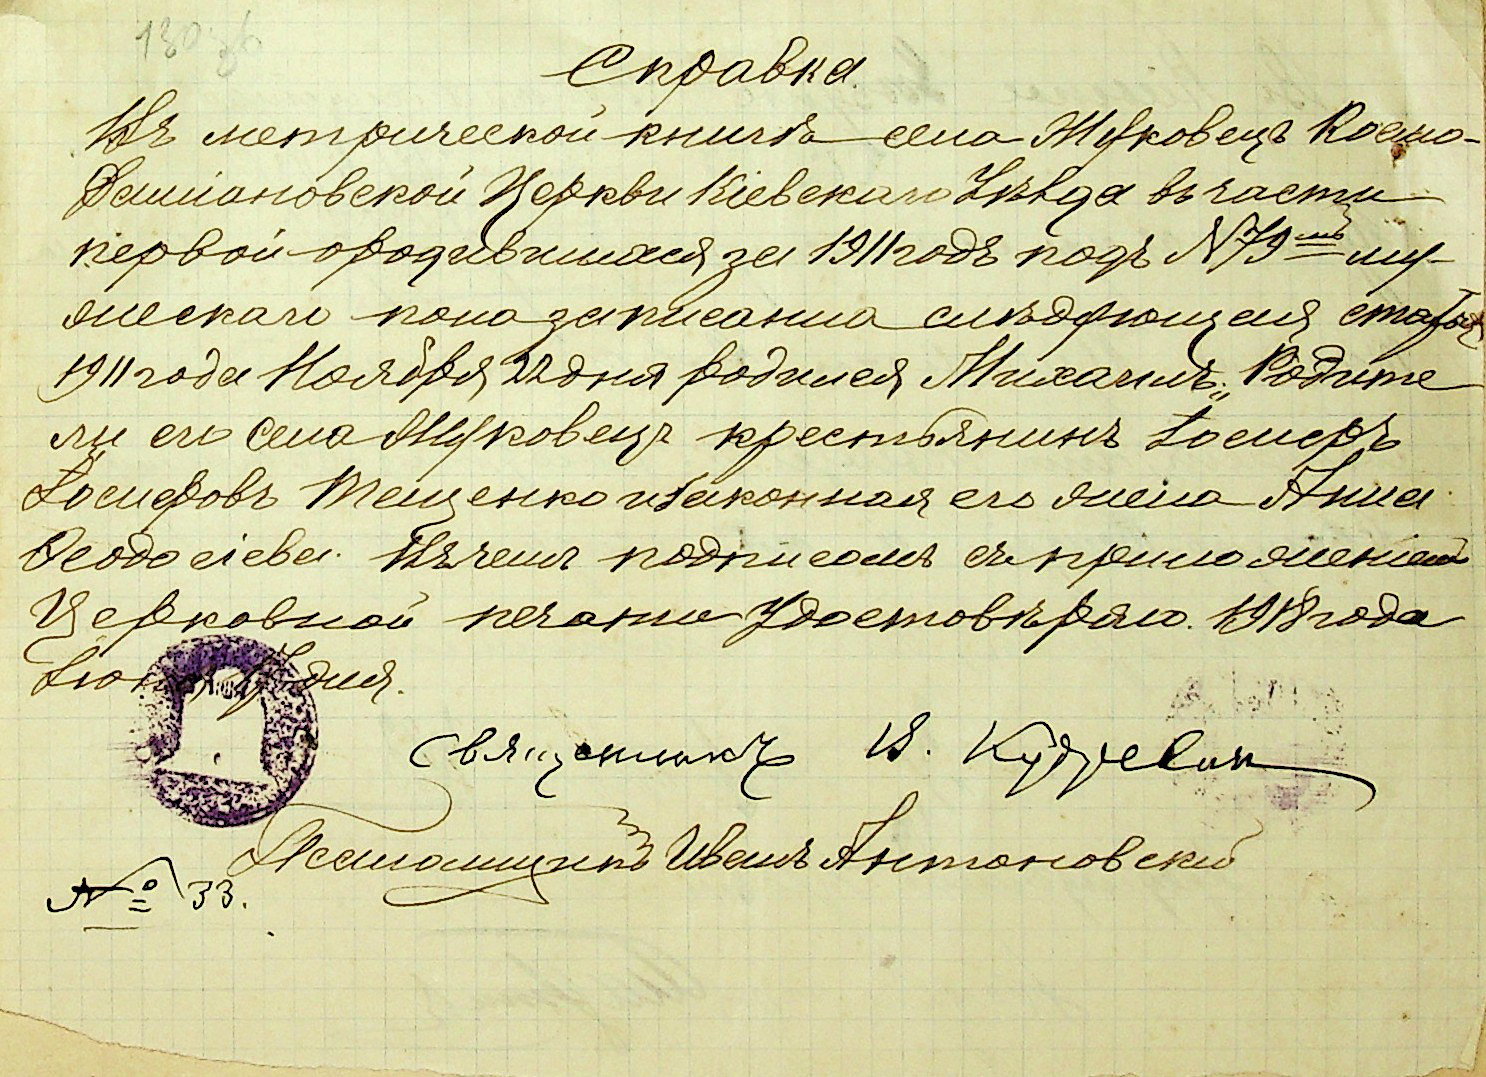 Справка.
Въ метрической книгѣ села Жуковецъ Космо-
Даміановской Церкви Кіевскаго Уѣзда въ части
первой о родившихся за 1911 годъ подъ N 79 мъ му-
жескаго пола записанна слѣдующая статья
1911 года Ноября 22 дня родился Михаилъ." Родите
ли его села Жуковецъ крестьянинъ Іосифъ
Іосифовъ Тещенко и законная его жена Анна
Феодосіева. Въ чемъ подписомъ съ приложеніемъ
Церковной печати Удостовѣряю. 1918 года
дня.
Священникъ В.
Псаломщикъ Иванъ Антоновскій
№ 33.